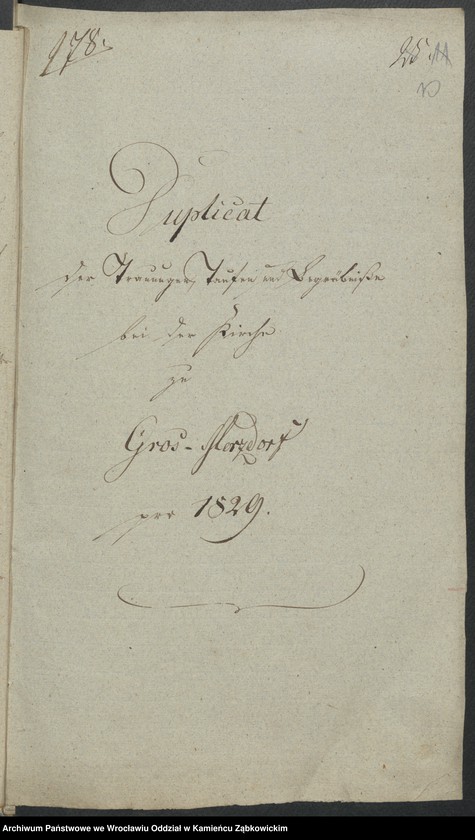 178.
25.
Duplicat
der Trauungen, Taufen und Begräbniße
bei der Kirche
zu
Gros-Merzdorf
pro 1829.
Archiwum Państwowe we Wrocławiu Oddział w Kamieńcu Ząbkowickim